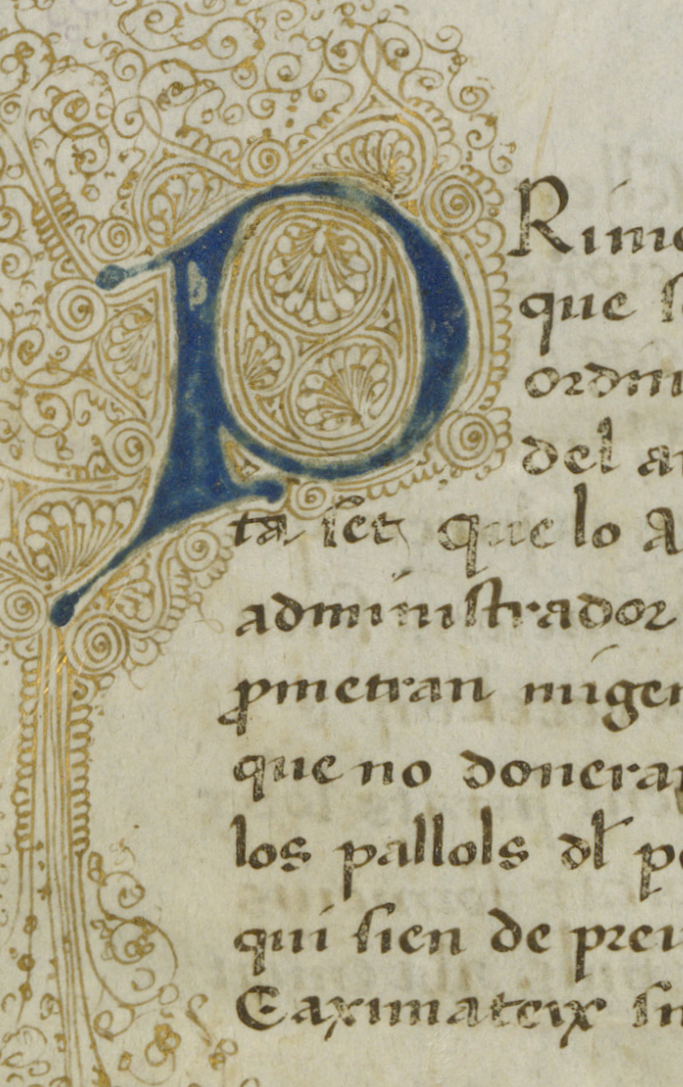 PRimer
que s
ordin
del a
ta fet que lo A
administrador
ꝓmetran migen
que no doneran
los pallols dl po
qui sien de preu
Eaximateix sn